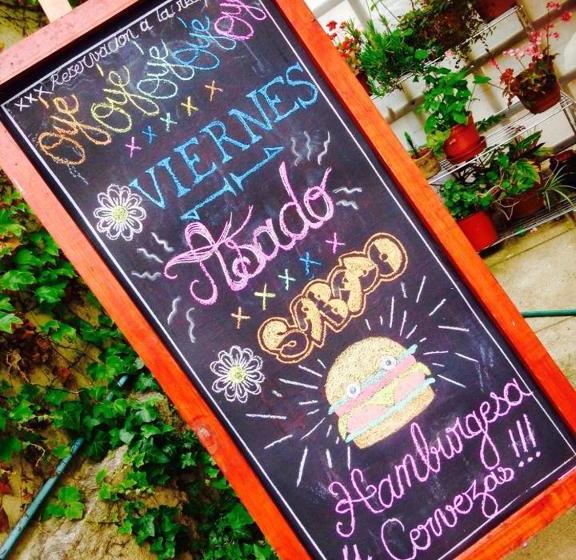 xxx Reservación a la
Oyé oyé oye oye oye
VIERNES
Asado
SABADO
Hamburgesa
Cervezas !!!